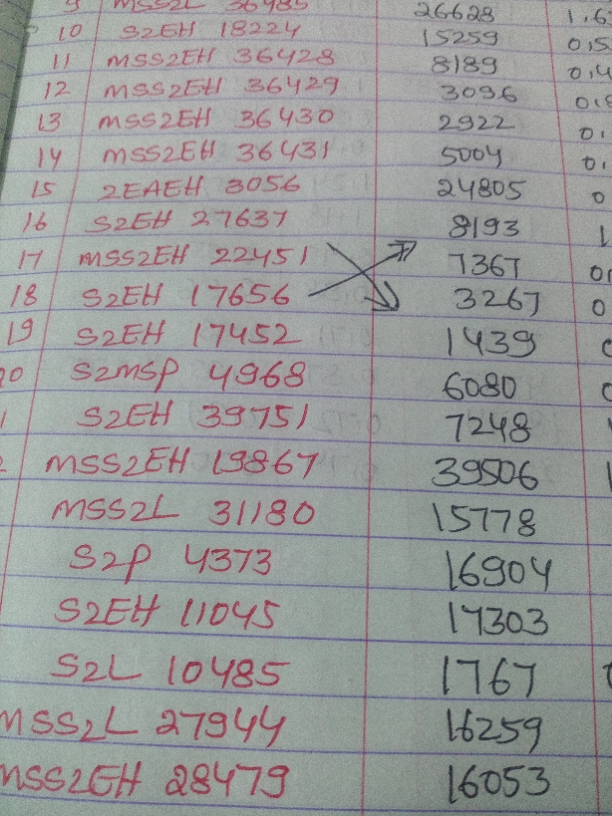 9 MSS2L 36985 26628 1,6
10 S2EH 18224 15259 0,5
11 MSS2EH 36428 8189 0,4
12 MSS2EH 36429 3096 0,8
13 MSS2EH 36430 2922 0,
14 MSS2EH 36431 5004 0,
15 2EAEH 3056 24805 0
16 S2EH 27637 8193 1
17 MSS2EH 22451 7367 0,
18 S2EH 17656 3267 0
19 S2EH 17452 1439
20 S2MSP 4968 6080
1 S2EH 39751 7248
2 MSS2EH 19867 39506
MSS2L 31180 15778
S2P 4373 16904
S2EH 11045 17303
S2L 10485 1767
MSS2L 27944 16259
MSS2EH 28479 16053